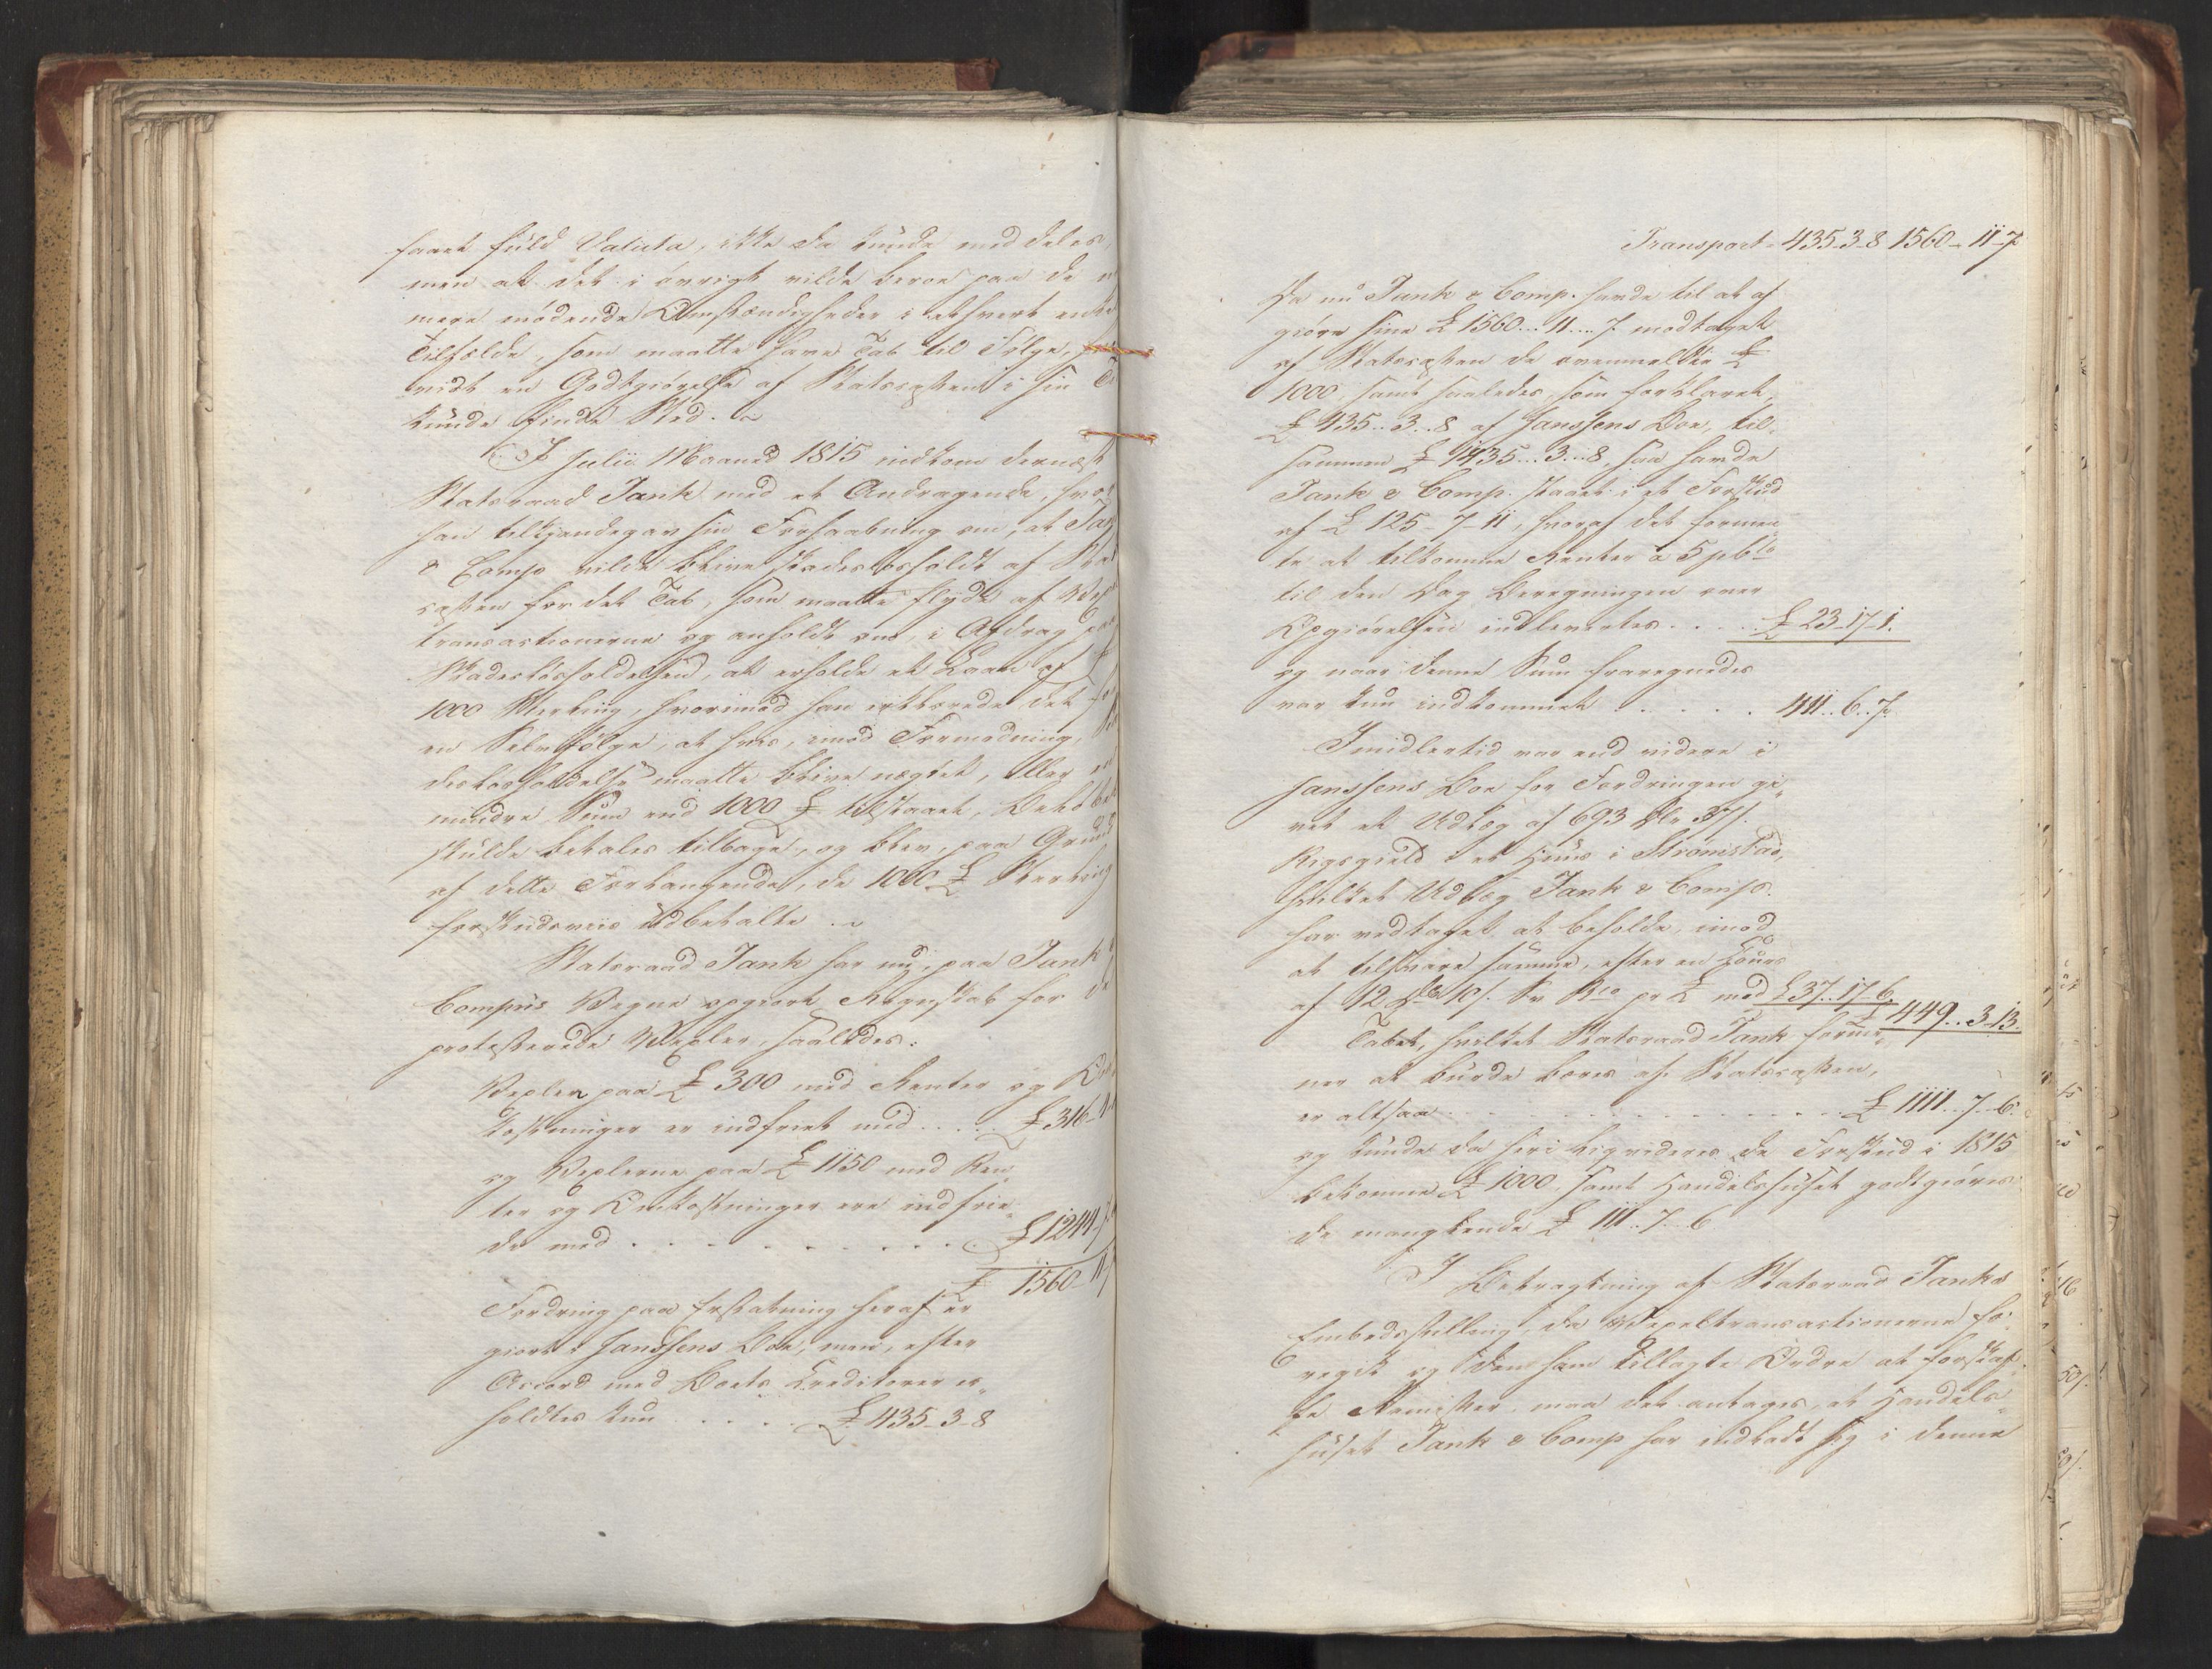 faaet fuld Valuta, ikke da kunde meddeles,
men at det i øvrigt vilde beroe paa de
mere mødende Omstændigheder i ethvert
Tilfælde, som maatte have Tab til Følge,
vidt en Godtgiørelse af Statscassen i sin
kunde finde Sted. ~
I Julii Maaned 1815 indkom dernæst
Statsraad Tank med et Andragende, hvor
han tilkjendegav sin Forhaabning om, at
& Comp vilde blive skadesløsholdt af
cassen for det Tab, som maatte flyde af
transactionerne og anholdt om, i Afdrag paa
Skadesløsholdelsen, at erholde et Laan af £
1000 Sterling, hvorimod han erklærede det
en Selvfølge, at hvis, imod Formodning,
desløsholdelse maatte blive nægtet, eller en
mindre Sum end 1000 £ tilstaaet, dette
skulde betales tilbage, og blev, paa Grund
af dette Forlangende, de 1000 £ Sterling
forskudsviis udbetalte. ~
Statsraad Tank har nu, paa Tank
Compnis Vegne opgiort Regnskab for de
protesterede Vexler, saaledes:
Vexler paa £ 300 med Renter og
kostninger er indfriet med . . . . £ 316
og Vexlerne paa £ 1150 med Ren„
ter og Omkostninger ere indfrie„
de med . . . . . . . . . . £ 1244
£ 1560 11
Fordring paa Erstatning heraf er
giort i Janssens Boe, men, efter
Accord med Boets Creditorer er„
holdtes kun . . . . £ 435-3-8
Transport 435-3-8 1560-11-7
Da nu Tank & Comp. havde til at af
giøre sine £ 1560...11...7. modtaget
af Statscassen de ovenmeldte £
1000, samt saaledes, som forklaret,
£ 435..3..8 af Janssens Boe, til„
sammen £ 1435...3...8, saa havde
Tank & Comp. staaet i et Forskud
af £ 125-7-11, hvoraf det formeen„
te at tilkomme Renter a 5 pCto
til den Dag Beregningen over
Opgiørelsen indleveretes . . . . £ 23-17-1.
og naar denne Sum fraregnedes
var kun indkommet . . . . . 411..6..7.
Imidlertid var end videre i
Janssens Boe for Fordringen gi„
vet et Udlæg af 693 Rdlr 37 s.
Rigsgield i et Huus i Strømstad,
hvilket Udlæg Tank & Comp.
har vedtaget at beholde, imod
at tilsvare samme, efter en Cours
af 12 Rdr 10 s. Sv Rco pr £ med £ 37..17..6.
£ 449..3..13.
Tabet, hvilket Statsraad Tank formee„
ner at burde bæres af Statscassen,
er altsaa . . . . . . . . . . . £ 1111..7..6.
og kunde da heri liqvideres de Forskud i 1815
bekomne £ 1000, samt Handelshuset godtgiøres
de manglende £ 111..7..6
I Betragtning af Statsraad Tanks
Embedsstilling, da Vexeltransactionerne fo„
regik og den ham tillagte Ordre at forskaf„
fe Remisser, maa det antages, at Handels„
huset Tank & Comp har indladt sig i denne